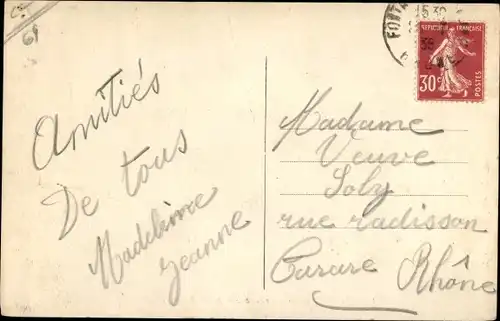 61
Amitiés
De tous
Madeleine
Jeanne
15 30
RÉPUBLIQUE FRANÇAISE
30c
POSTES
Madame
Veuve
Soly
rue radisson
Tarare Rhône